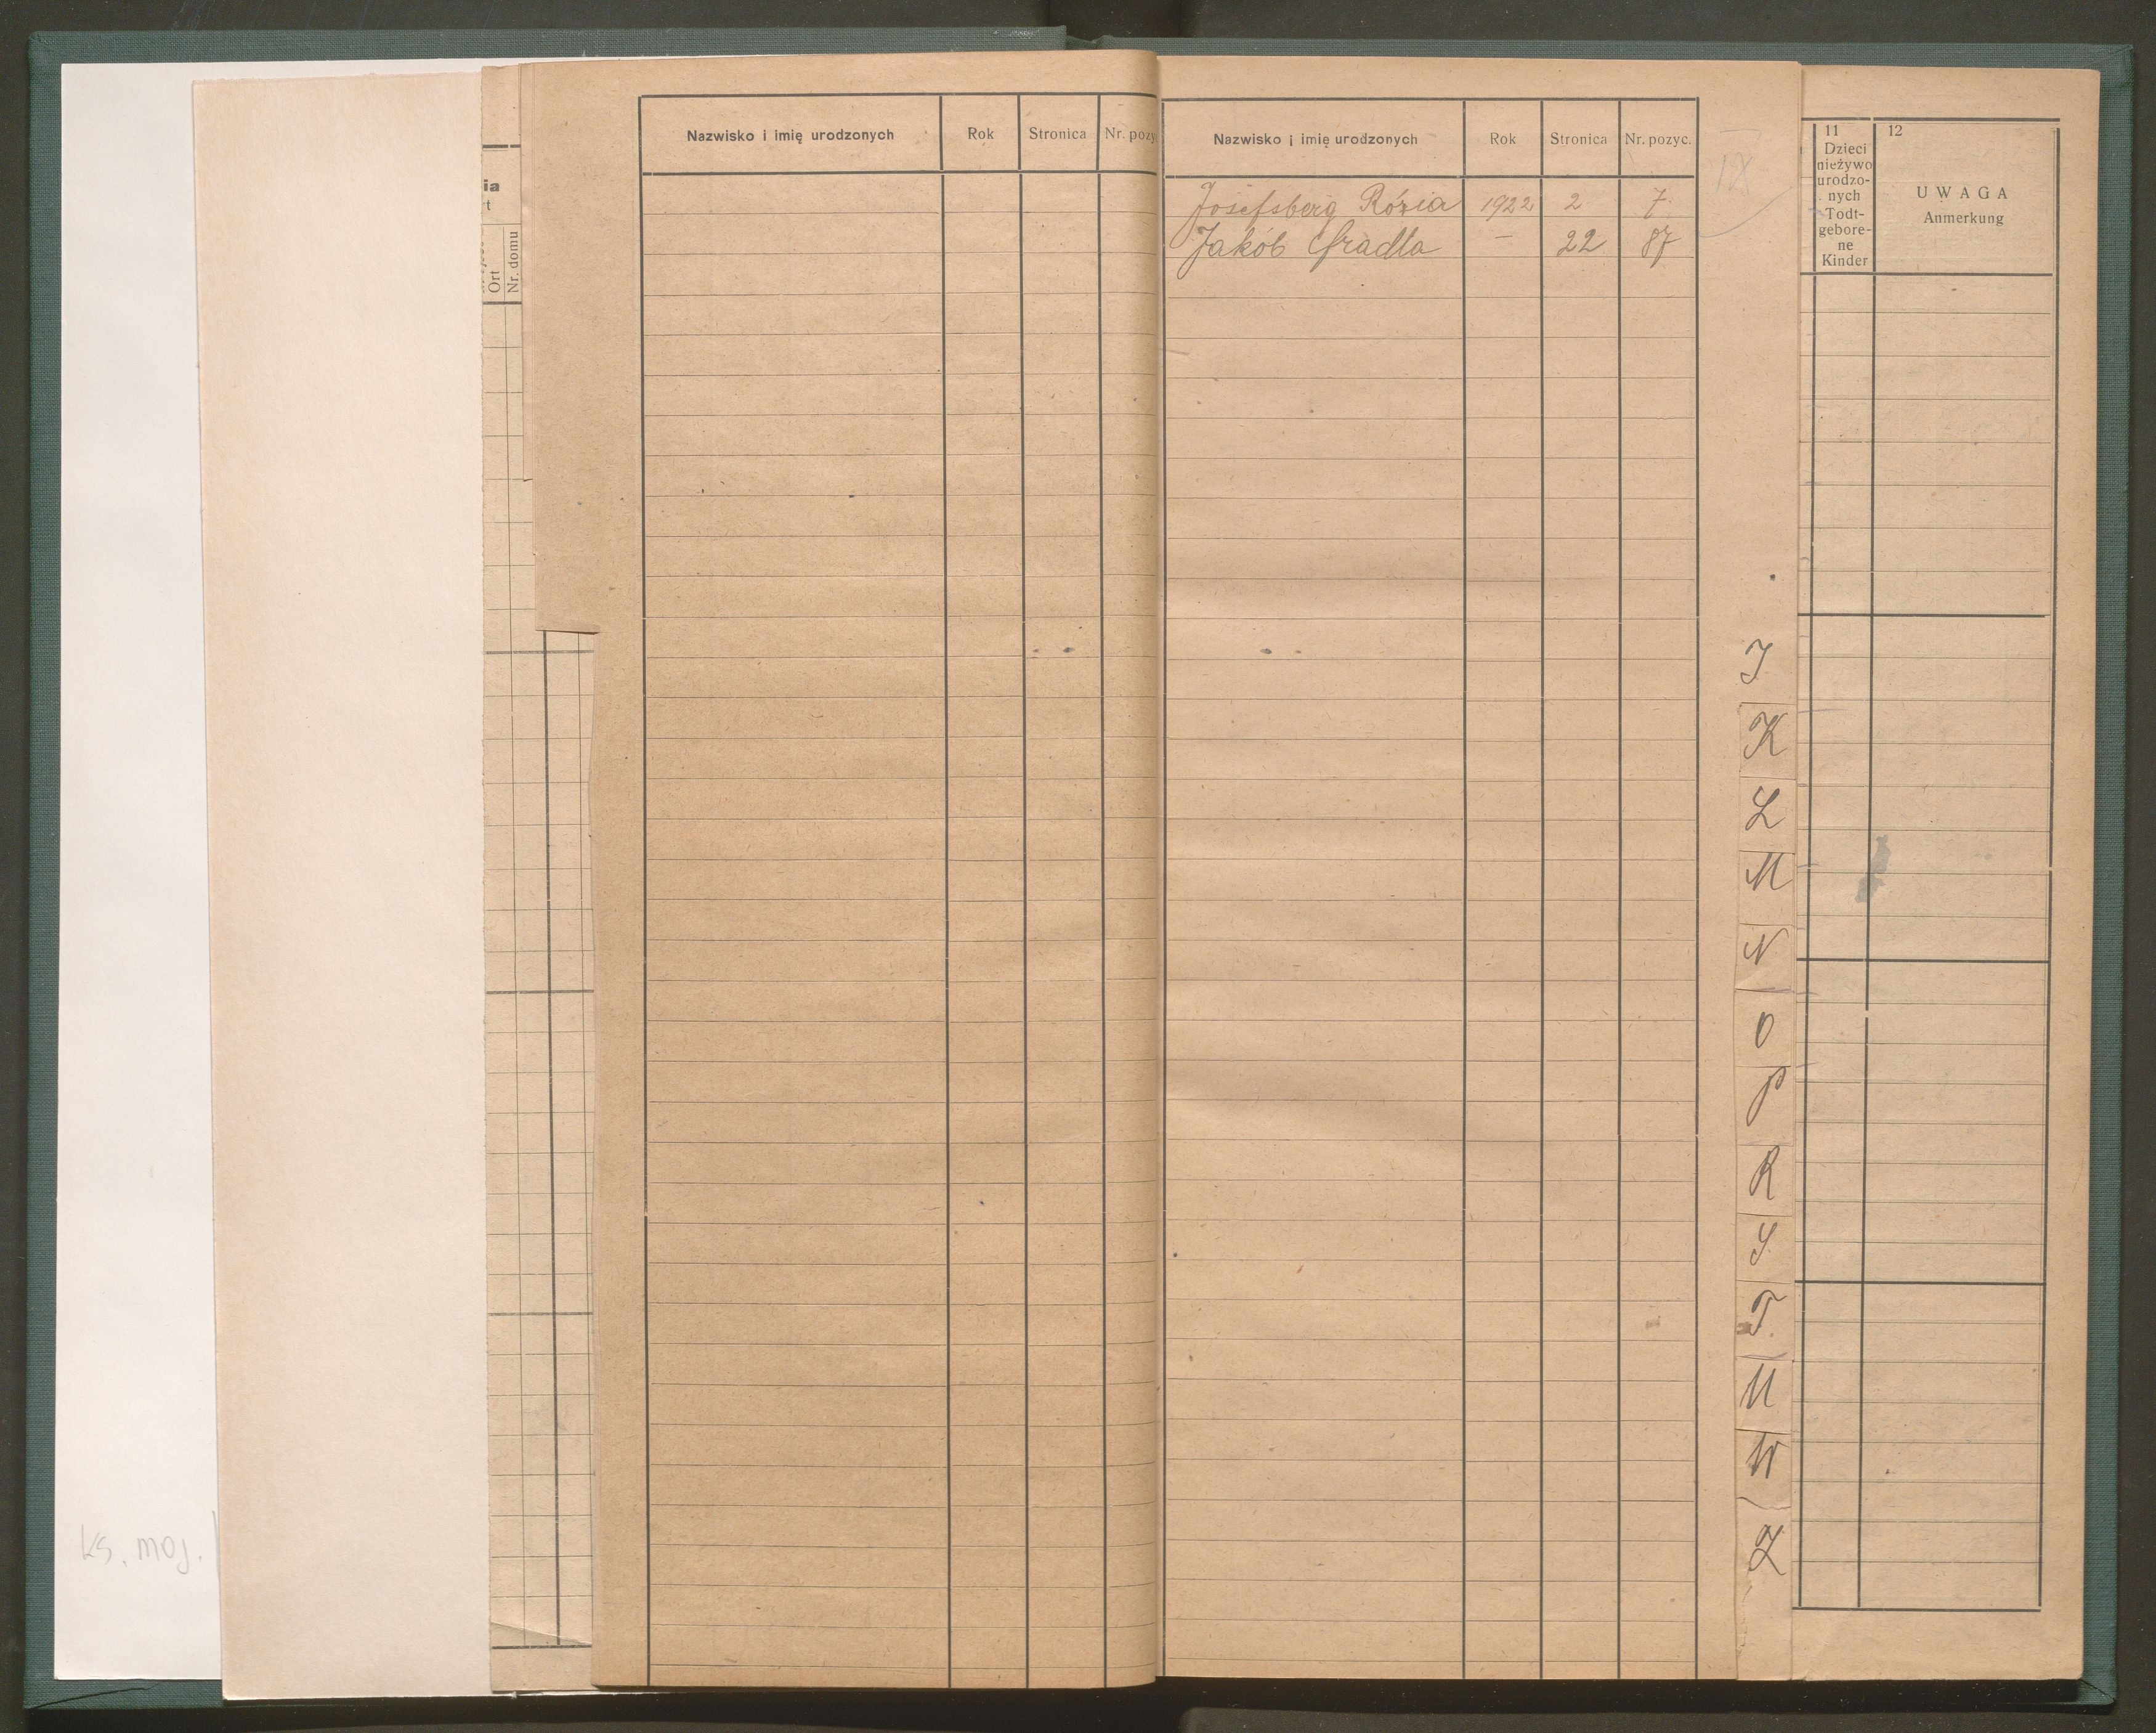 ia
t
Ort
Nr. domu
Nazwisko i imię urodzonych Rok Stronica Nr. pozy
Nazwisko i imię urodzonych Rok Stronica Nr. pozyc.
Josefsberg Rózia 1922 2 7
Jakób Gradla — 22 87
IX
11
Dzieci
nieżywo
urodzo-
nych
Todt-
gebore-
ne
Kinder
12
UWAGA
Anmerkung
J
K
L
M
N
O
P
R
S
T.
U
W
Z
ks. moj.